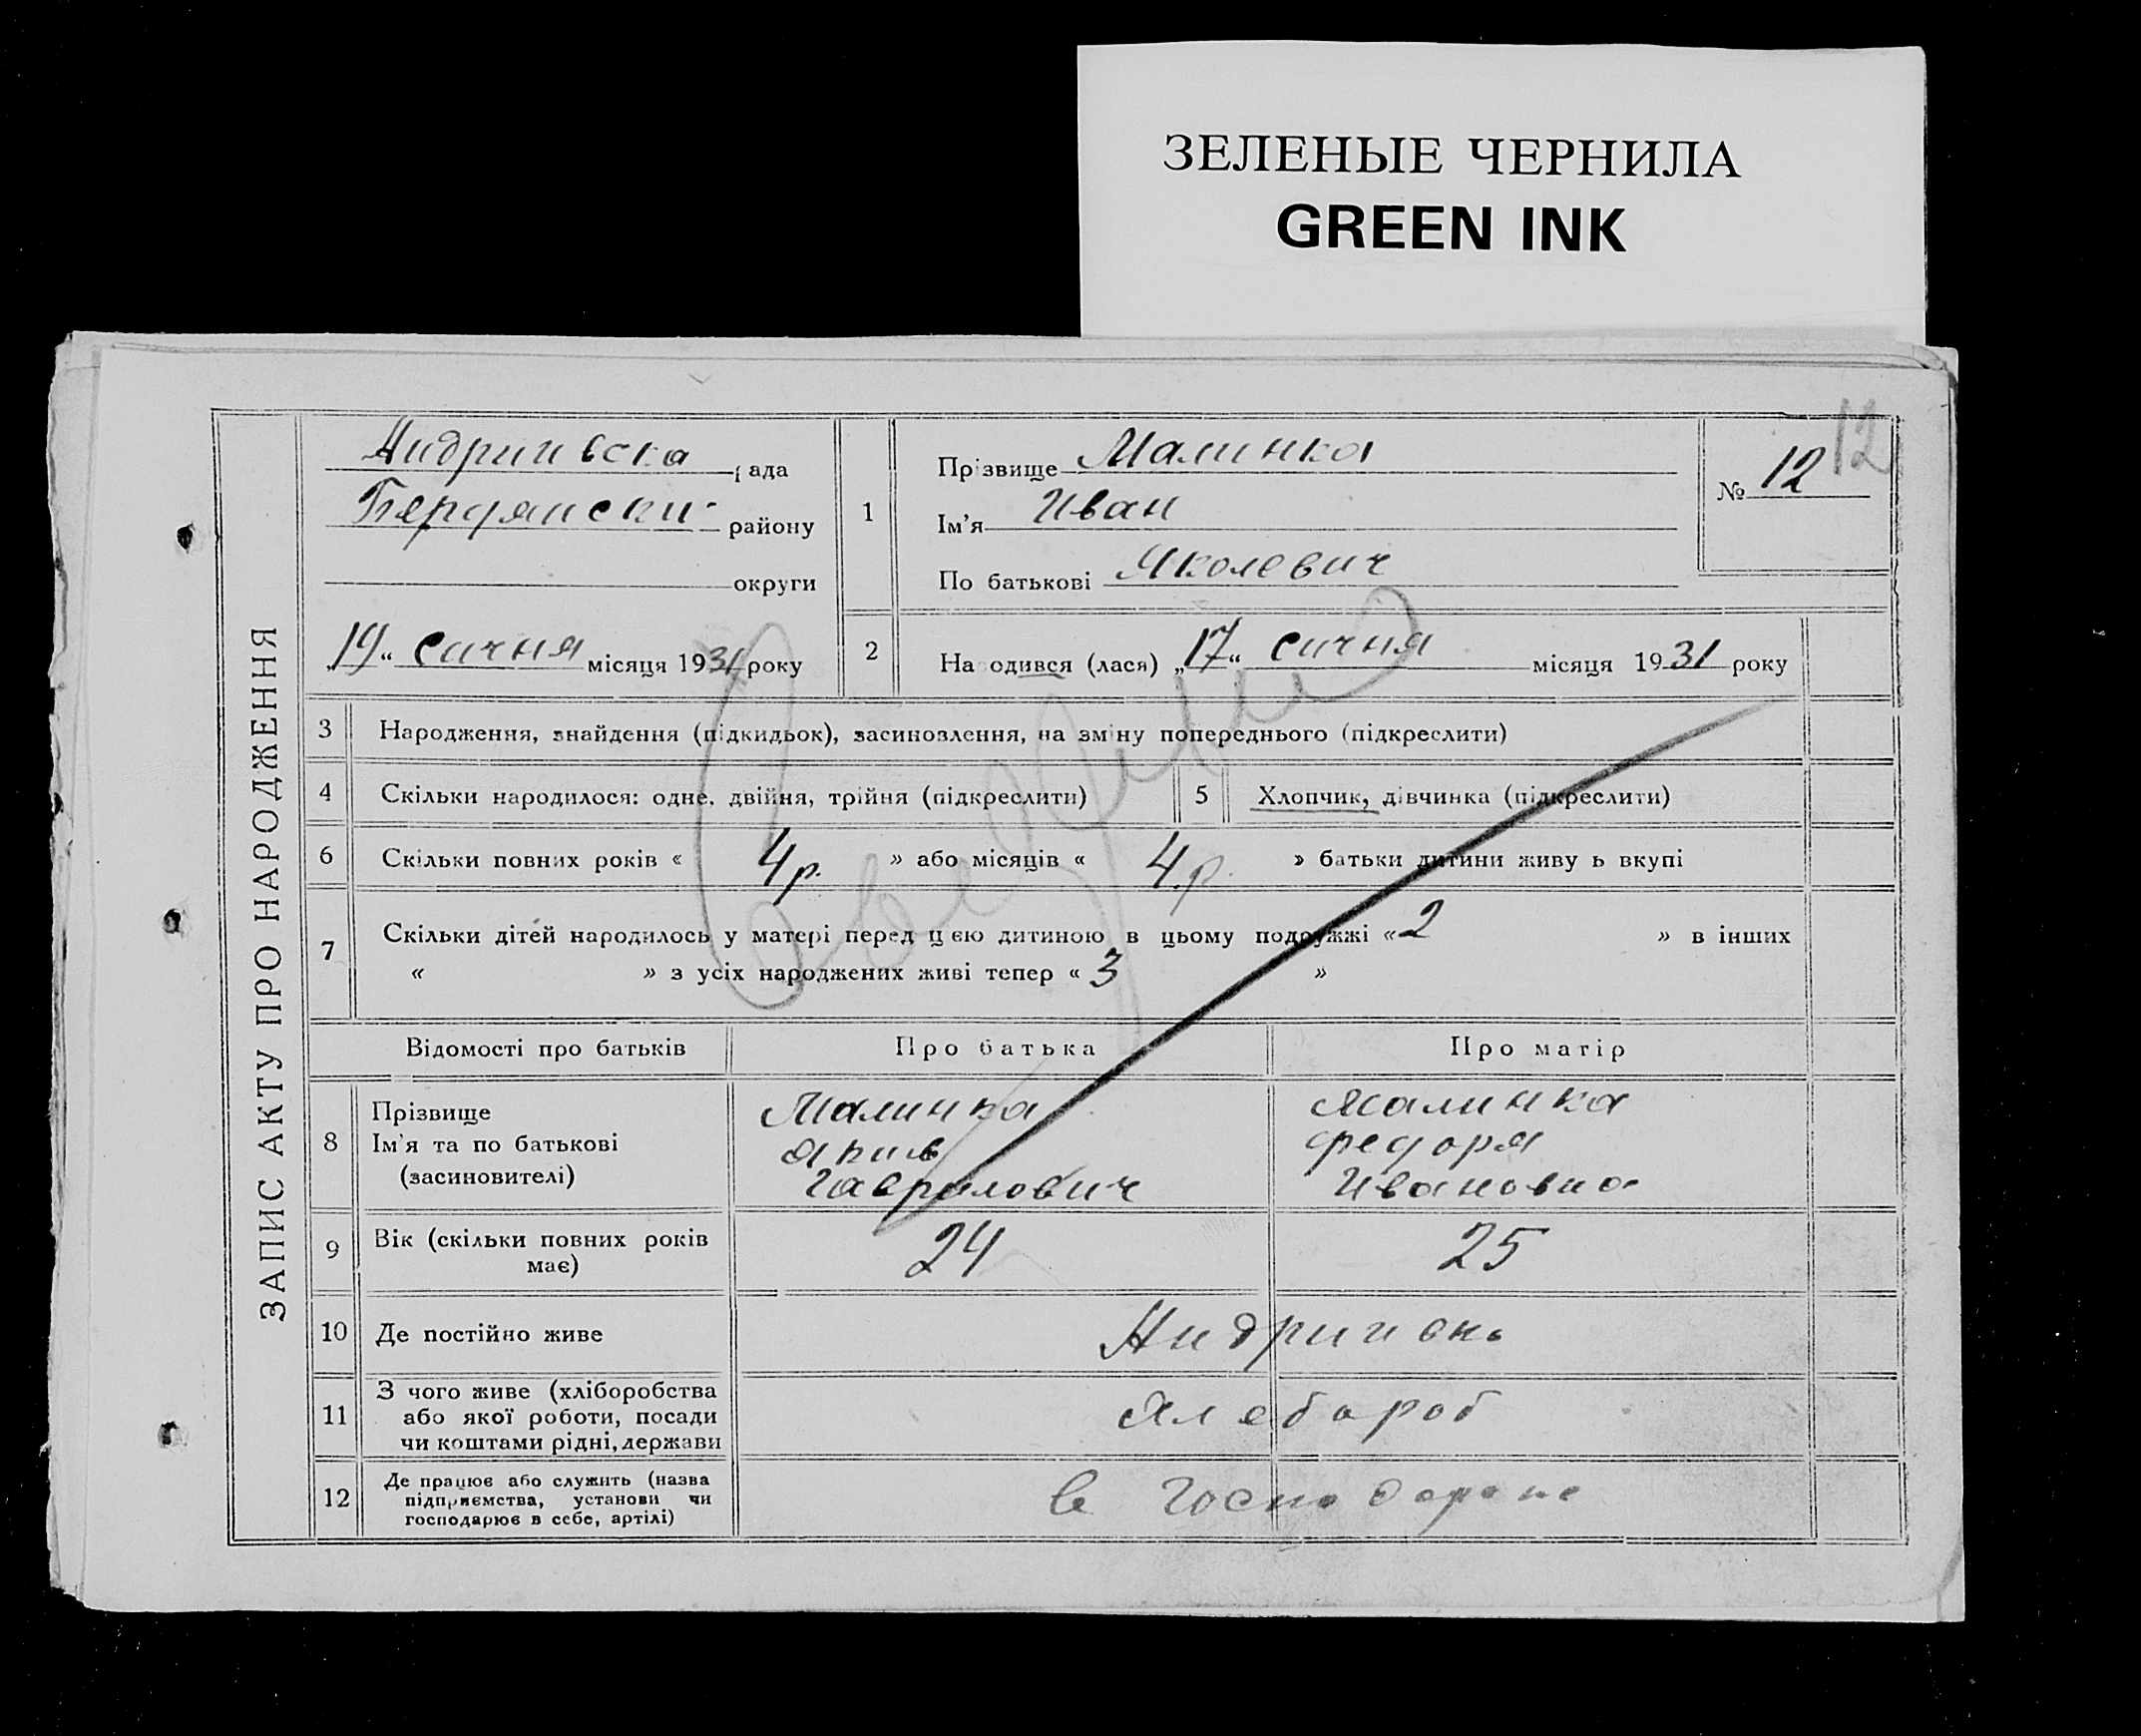 ЗЕЛЕНЫЕ ЧЕРНИЛА
GREEN INK
12
ЗАПИС АКТУ ПРО НАРОДЖЕННЯ
Андриивска рада
Бердянски району
округи
„19“ сичня місяця 1931 року
1
Прізвище Малинка
Ім'я Иван
По батькові Яколевич
№ 12
2
Народився (лася) „17“ сичня місяця 1931 року
3 Народження, знайдення (підкидьок), засиновлення, на зміну попереднього (підкреслити)
4 Скільки народилося: одне, двійня, трійня (підкреслити)
5 Хлопчик, дівчинка (підкреслити)
6 Скільки повних років « 4р. » або місяців « 4.р. » батьки дитини живуть вкупі
7 Скільки дітей народилось у матері перед цією дитиною в цьому подружжі « 2 » в інших
« » з усіх народжених живі тепер « 3 »
Відомості про батьків Про батька Про матір
8
Прізвище
Ім'я та по батькові
(засиновителі)
Малинка
Гаврилович
Малинка
Федоря
Ивановна
9 Вік (скільки повних років
має)
24 25
10 Де постійно живе
11 З чого живе (хліборобства
або якої роботи, посади
чи коштами рідні, держави
Хлебороб
12 Де працює або служить (назва
підприємства, установи чи
господарює в себе, артілі)
в